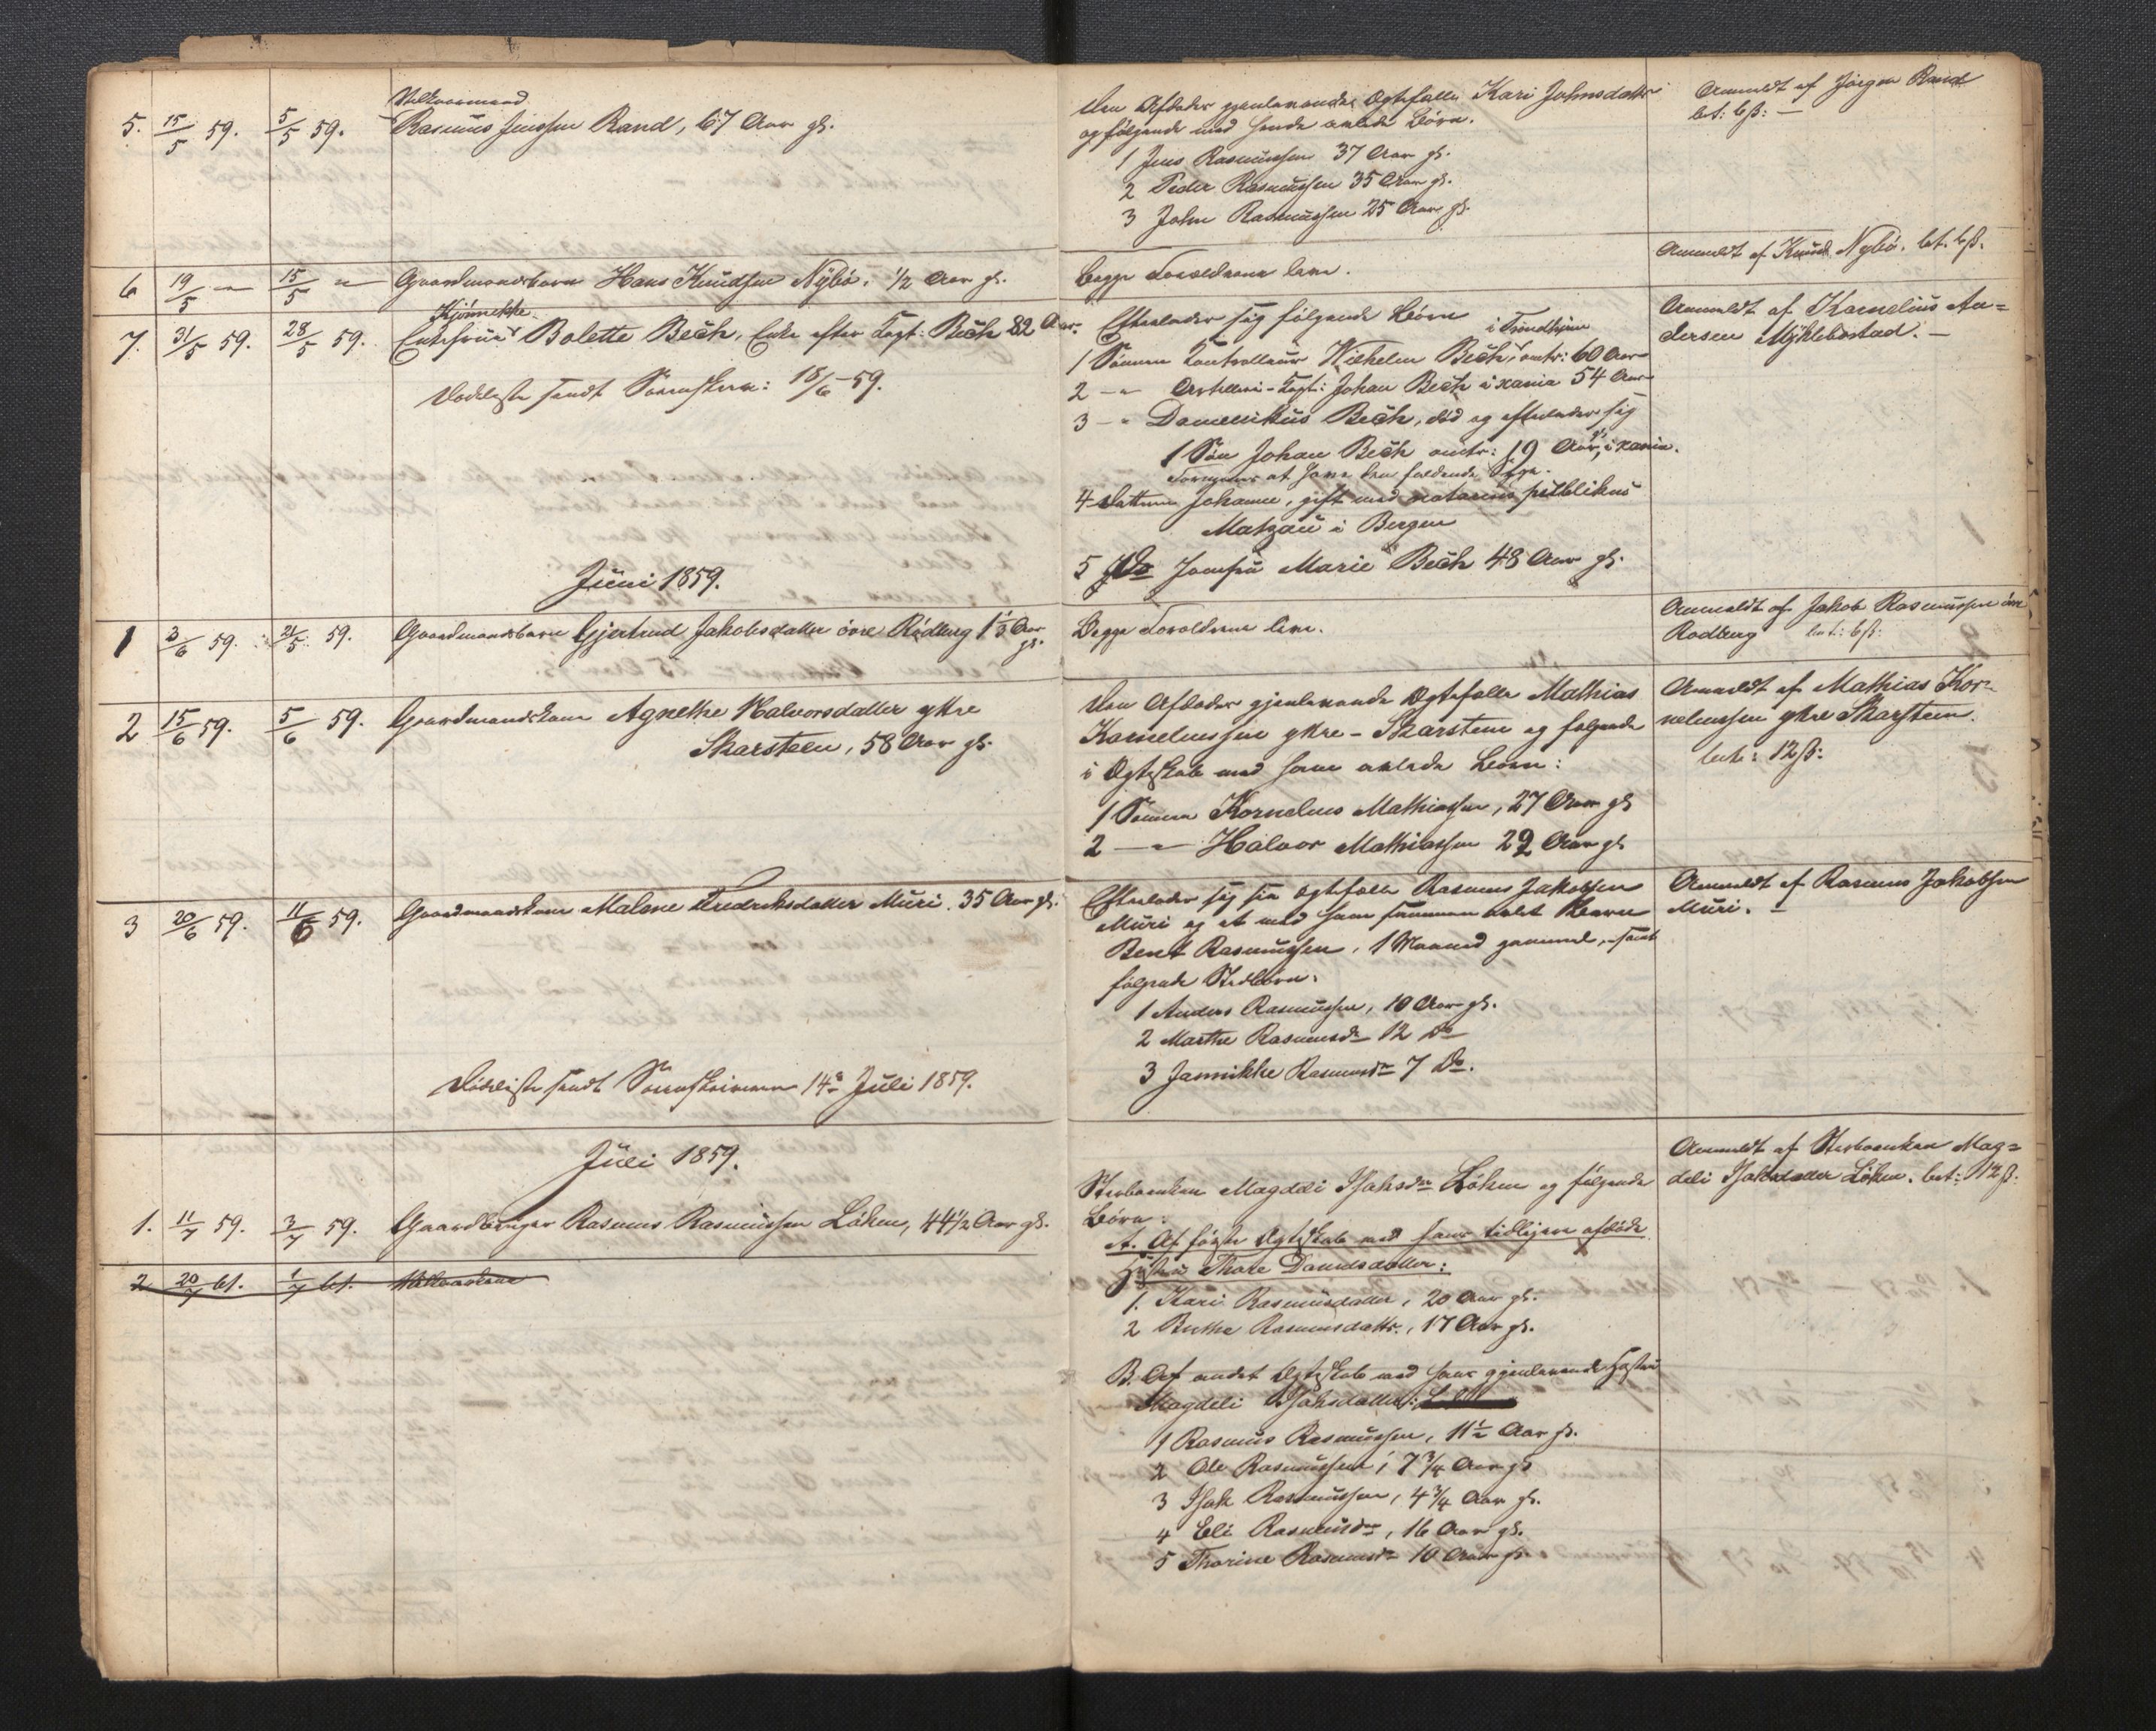 5. 15/5 59. 5/5 59. Velkaarmand
Rasmus Jenssen Rand, 67 Aar gl.
Den Afdødes gjenlevende Ægtefælle Kari Johnsdatter
og følgende med hende avlede Børn.
1 Jens Rasmussen 37 Aar gl.
2 Peder Rasmussen 35 Aar gl.
3 John Rasmussen 25 Aar gl.
Anmeldt af Jørgen Rand
bet: 6 ß: —
6 19/5 — 15/5 — Gaardmandsbarn Hans Knudsen Nÿbø. 1/2 Aar gl.
Begge Forældrene leve.
Anmeldt af Knud Nybø. bet. 6 ß.
7. 31/5 59. 28/5 59. Enkefrue Bolette Bech, Enke efter Capt: Bech 82 Aar.
Dødsliste sendt Sorenskr: 18/6 59.
Efterlader sig følgende Børn
i Trondhjem
1 Sønnen Controlleur Wilhelm Bech, omtr: 60 Aar
2 — " Artilleri-Capt: Johan Bech i Xania 54 Aar
3 — " Domenikus Bech, død og efterlader sig
1 Søn Johan Bech omtr: 19 Aar gl, i Xania.
Formenes at have den faldende Syge.
4 Datteren Johanne, gift med notarius publikus
Matzau i Bergen
5 Do Jomfru Marie Bech 48 Aar gl.
Anmeldt af Kornelius An=
dersen Mÿklebostad. —
Juni 1859.
1 3/6 59. 21/5 59. Gaardmandsbarn Gjertrud Jakobsdatter øvre Rødberg 1 1/3 Aar
gl.
Begge Forældrene leve.
Anmeldt af Jakob Rasmussen øvre
Rødberg bet: 6 ß:
2 15/6 59. 5/6 59. Gaardmandskone Agnethe Halvorsdatter ytre
Skarsteen, 58 Aar gl.
Den Afdødes gjenlevende Ægtefælle Mathias
Kornelius­sen ytre-Skarsteen og følgende
i Ægteskab med ham avlede Børn:
1 Sønnen Kornelius Mathiassen, 27 Aar gl
2 — " — Halvor Mathiassen 22 Aar gl
Anmeldt af Mathias Kor=
neliussen ytre Skarsteen.
bet: 12 ß:
3 20/6 59. 11/6 59. Gaardmandskone Malene Fredriksdatter Muri. 35 Aar gl.
Dødsliste sendt Sorenskriveren 14de Juli 1859.
Efterlader sig sin Ægtefælle Rasmus Jakobsen
Muri og et med ham sammen avlet Barn
Bent Rasmussen, 1 Maaned gammel, samt
følgende Stedbørn.
1 Anders Rasmussen, 10 Aar gl.
2 Marthe Rasmusdr 12 Do
3 Jannikke Rasmusdr 7 Do.
Anmeldt af Rasmus Jakobsen
Muri. —
Juli 1859.
1. 11/7 59. 3/7 59. Gaardbruger Rasmus Rasmussen Løken, 44 1/2 Aar gl.
2 20/7 61. 1/7 61.
Stervboenken Magdeli Isaksdr Løken og følgende
Børn:
A. Af første Ægteskab med hans tidligere afdøde
Hustru Thore Danielsdatter:
1. Kari Rasmusdatter, 20 Aar gl.
2 Berthe Rasmusdattr., 17 Aar gl.
B. Af andet Ægteskab med hans gjenlevende Hustru
Magdeli Isaksdatter:
1 Rasmus Rasmussen, 11 1/2 Aar gl.
2 Ole Rasmussen, 7 3/4 Aar gl
3 Isak Rasmussen, 4 3/4 Aar gl.
4 Eli Rasmusdr, 16 Aar gl.
5 Thorine Rasmusdr 10 Aar gl.
Anmeldt af Stervboenken Mag=
deli Isaksdatter Løken. bet: 12 ß.